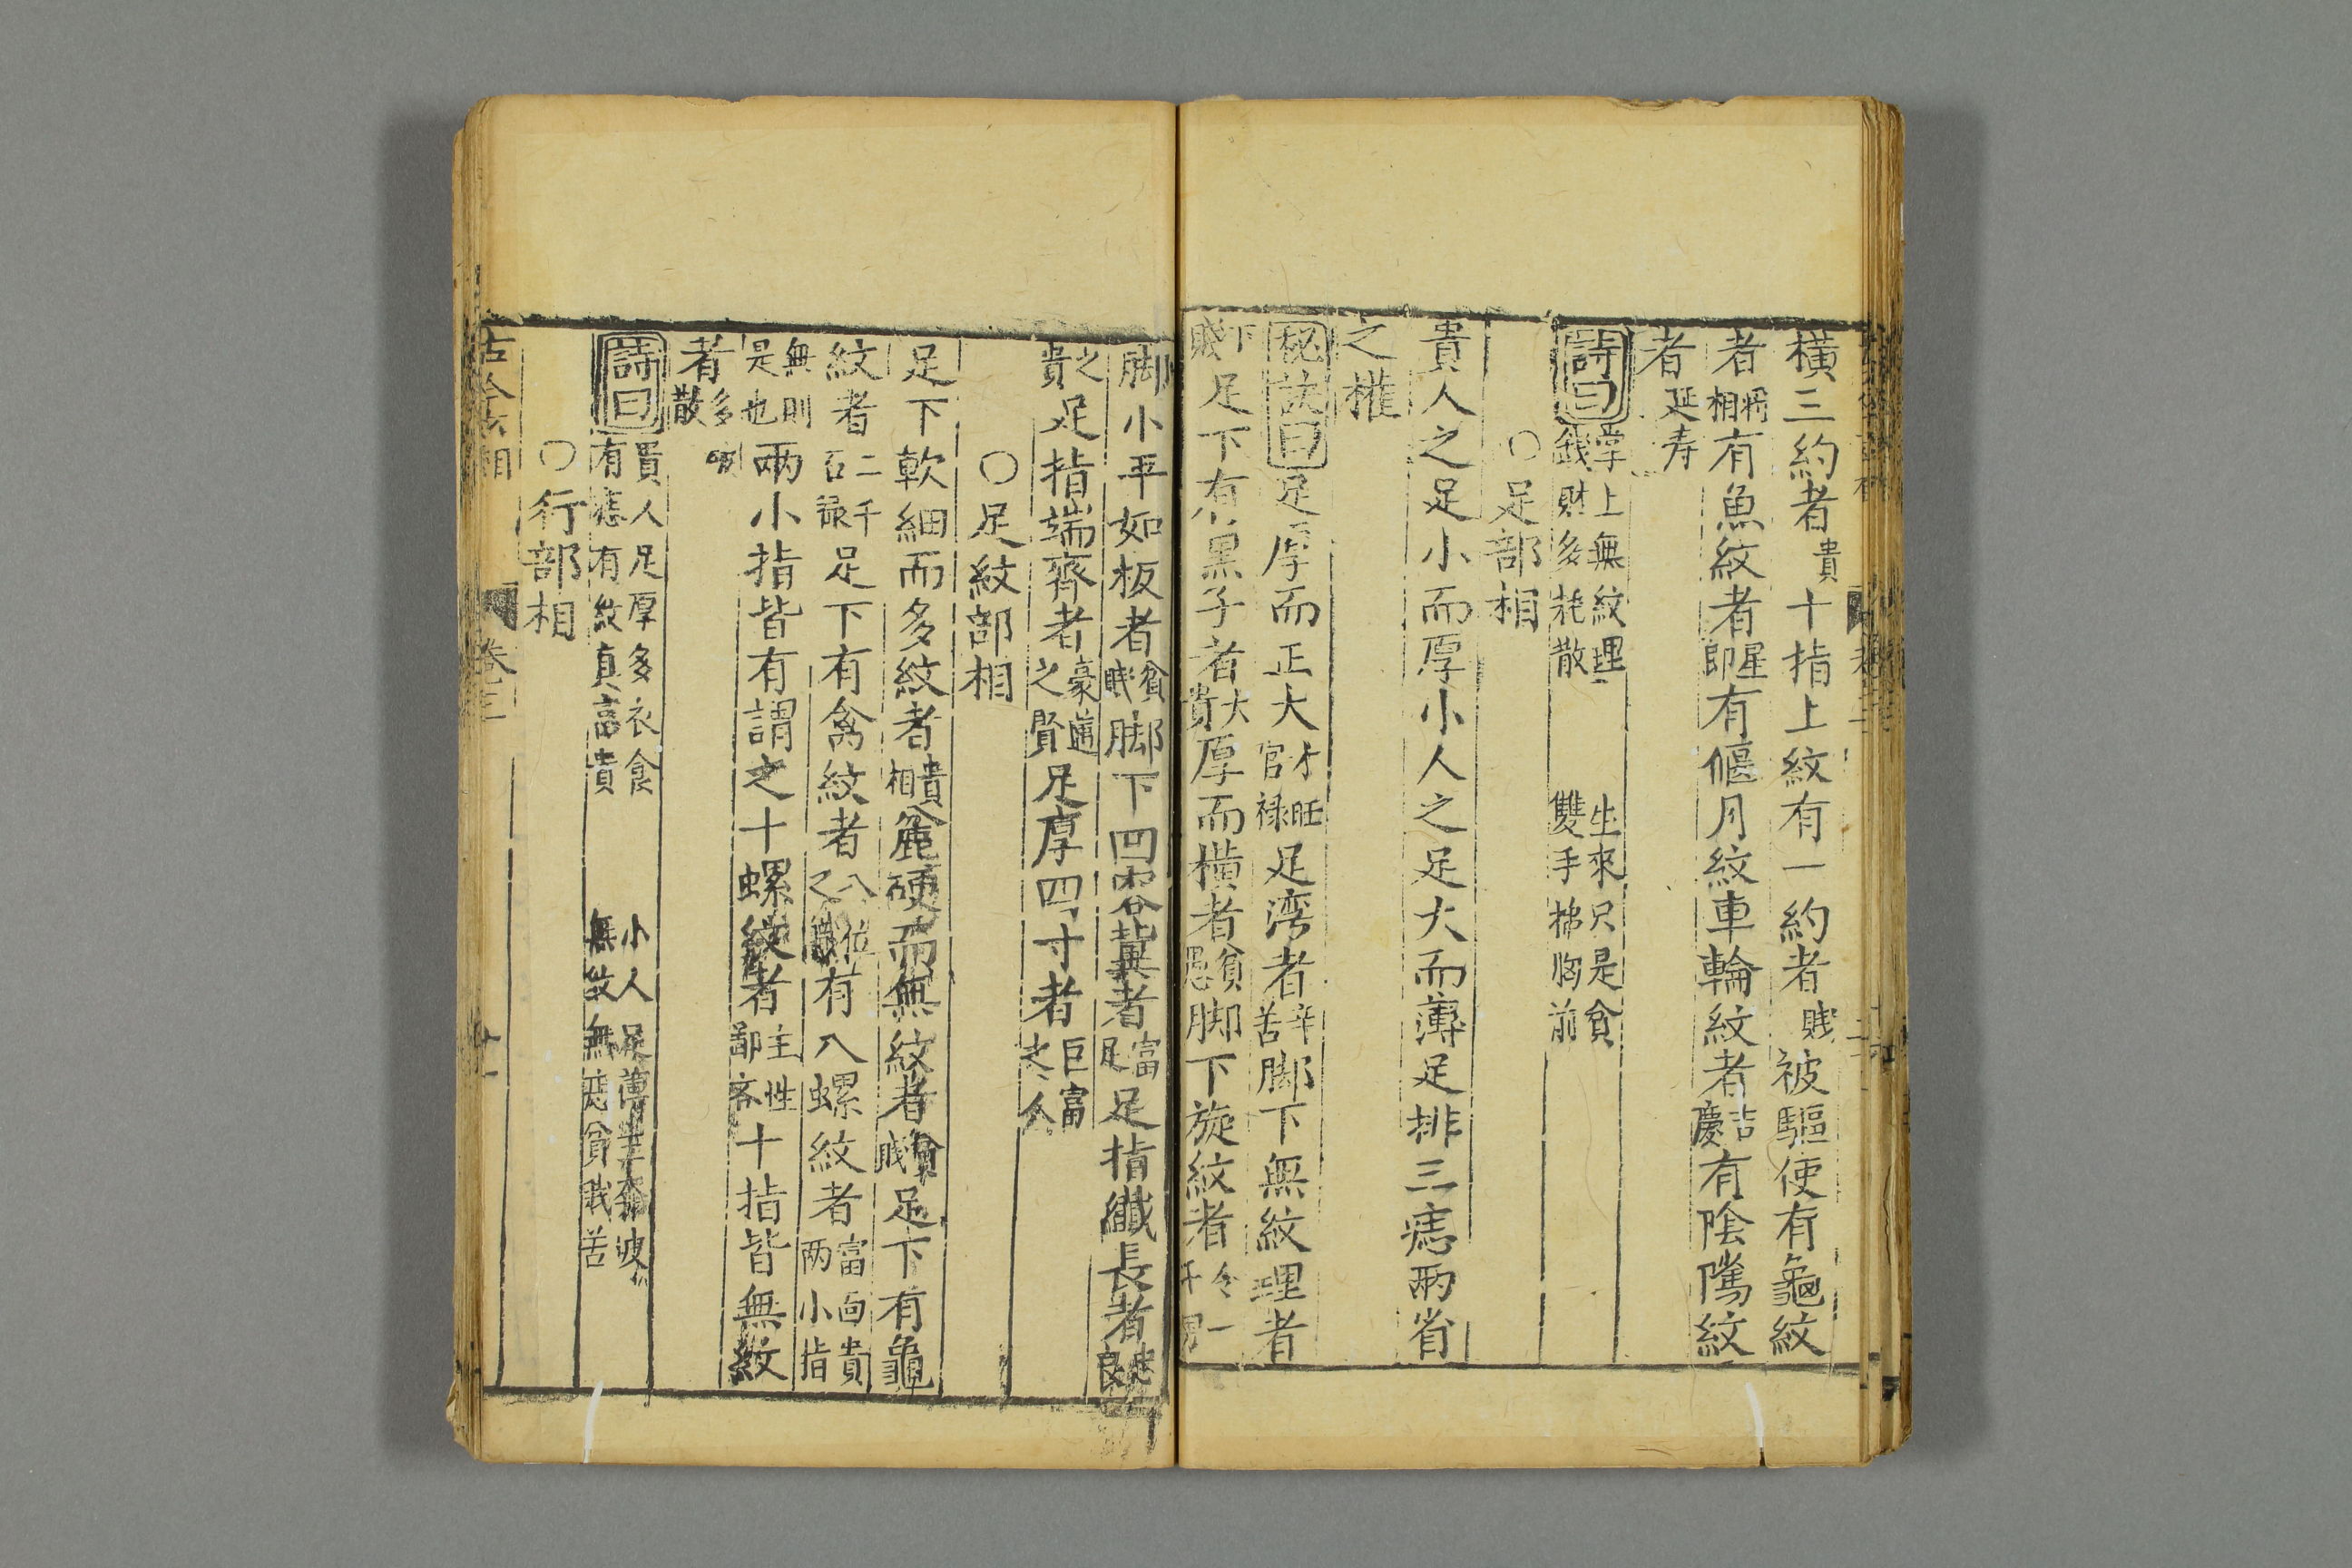 橫三約者貴十指上紋有一約者賤被驅使有龜紋
者將相有魚紋者星郎有偃月紋車輪紋者吉慶有陰隲紋
者延寿
詩曰掌上無紋理生來只是貪錢財多耗散雙手柫胸前
○足部相
貴人之足小而厚小人之足大而薄足排三痣兩省
之權
秘訣曰足厚而正大才旺官禄足湾者辛苦脚下無紋理者
下賤足下有黒子者大貴厚而橫者貧愚脚下旋紋者令一千
脚小平如板者貧賤脚下凹容者富足足指纖長者忠良
之貴足指端齊者豪邁之賢足厚四寸者巨富之人
○足紋部相
足下軟細而多紋者貴相麄硬而無紋者貧賤足下有龜
紋者二千石禄足下有禽紋者八位之職有八螺紋者富而貴两小指
無則是也兩小指皆有謂之十螺紋者主性鄙吝十指皆無紋
者多散
詩曰貴人足厚多衣食小人足薄主奔波有痣有紋真富貴無紋無痣貧賤苦
○行部相
古今 相 卷三